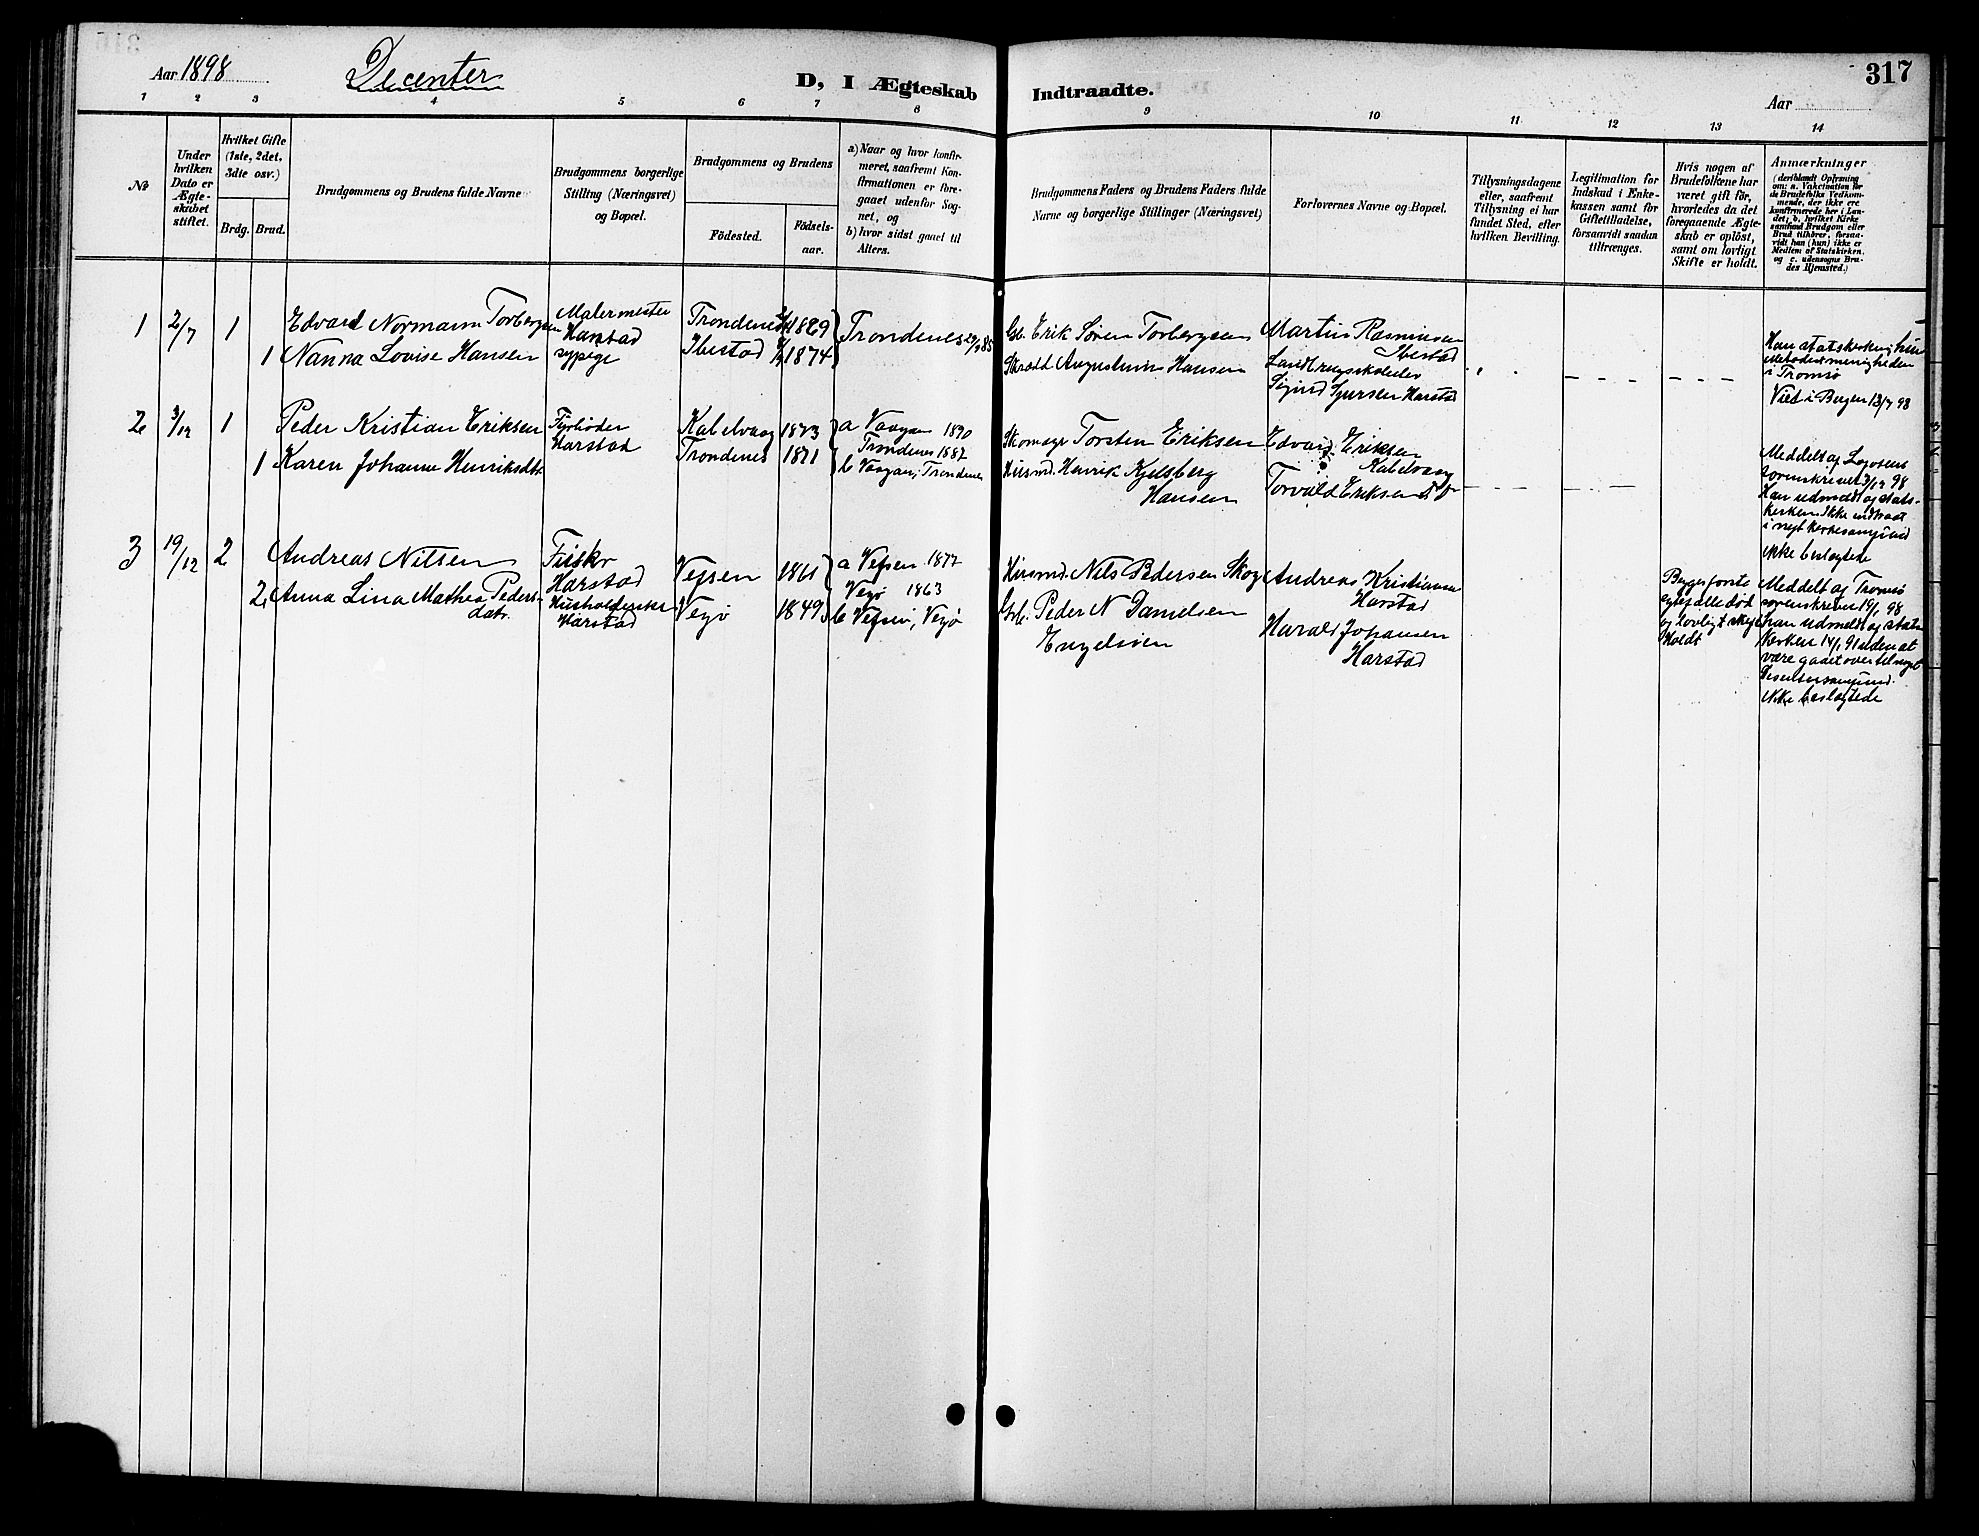 Aar 1898
Decenter
D, I Ægteskab
Indtraadte.
317
Aar
1 2 3 4 5 6 7 8 9 10 11 12 13 14
No
Under
hvilken
Dato er
Ægte-
skabet
stiftet.
Hvilket Gifte
(1ste, 2det,
3die osv.)
Brdg. Brud.
Brudgommens og Brudens fulde Navne
Brudgommens borgerlige
Stilling (Næringsvei)
og Bopæl.
Brudgommens og Brudens
Födested.
Födsels-
aar.
a) Naar og hvor konfir-
meret, saafremt Kon-
firmationen er fore-
gaaet udenfor Sog-
net, og
b) hvor sidst gaaet til
Alters.
Brudgommens Faders og Brudens Faders fulde
Navne og borgerlige Stillinger (Næringsvei)
Forlovernes Navne og Bopæl.
Tillysningsdagene
eller, saafremt
Tillysning ei har
fundet Sted, efter
hvilken Bevilling.
Legitimation for
Indskud i Enke-
kassen samt for
Giftetilladelse,
forsaavidt saadan
tiltrænges.
Hvis nogen af
Brudefolkene har
været gift för,
hvorledes da det
foregaaende Ægte-
skab er oplöst,
samt om lovligt
Skifte er holdt.
Anmærkninger
(deriblandt Oplysning
om: a. Vakcination for
de Brudefolks Vedkom-
mende, der ikke ere
konfirmerede her i Lan-
det; b. hvilket Kirke
samfund Brudgom eller
Brud tilhörer, forsaa-
vidt han (hun) ikke er
Medlem af Statskirken,
og c. udensogns Bru-
des Hjemsted.)
1 2/7 1 Edvard Normann Torbergsen
Malermester
Harstad
Trondenes 1869
Trondenes
1 Nanna Lovise Hansen
sypige
Ibestad 1874
Gb. Erik Sören Torbergsen
Skrædd Augustinus Hansen
Martin Rasmussen
Ibestad
Sigurd Harstad
Han statskirken, hun
i Tromsö
Viet i Bergen 13/7 98
2 3/12 1 Peder Kristian Eriksen
Fyrböder
Harstad
Kabelvaag 1873
a Vaagan 1890
Trondenes 1887
1 Karen Johanne Henriksdtr
Trondenes 1871
b Vaagan; Trondenes
Skomagr Torsten Eriksen
Husmd. Henrik Kjelsberg
Hansen
Edvard Eriksen
Kabelvaag
Torvald Eriksen do
Meddelt af
sorenskriver 3/12 98
Han udmeldt af stats-
kirken. Ikke indtraadt
i nyt kirkesamfund
ikke beslægtede
3 19/12 2 Andreas Nilsen
Fisker
Harstad
Vefsen 1861
a Vefsen 1877
Vegö 1863
2 Anna Lina Mathea Peders-
datr.
Husholderske
Harstad
Vegö 1849
b Vefsen, Vegö
Husmd. Nils Pedersen Skog
Grb. Peder N Danielsen
Andreas Kristiansen
Harstad
Harald Johansen
Harstad
Begge forste
död
og lovligt skifte
Holdt
Meddelt af Tromsö
sorenskriver 19/1 98
han udmeldt af stats
kirken 14/1 91 uden at
være gaaet over til noget
Dissentersamfund.
Ikke beslægtede